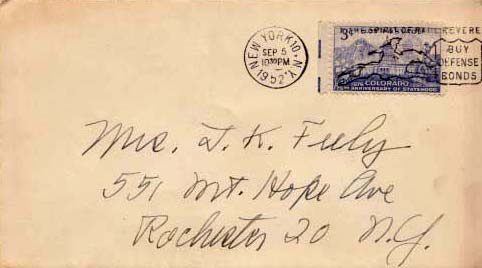 NEW YORK 10 N.Y.
SEP 5
10 30 PM
1952
3¢
REVERE
BUY
DEFENSE
BONDS
1876 COLORADO
75TH ANNIVERSARY OF STATEHOOD
Mrs. J. K. Feely
551 Mt. Hope Ave
Rochester 20 N.Y.